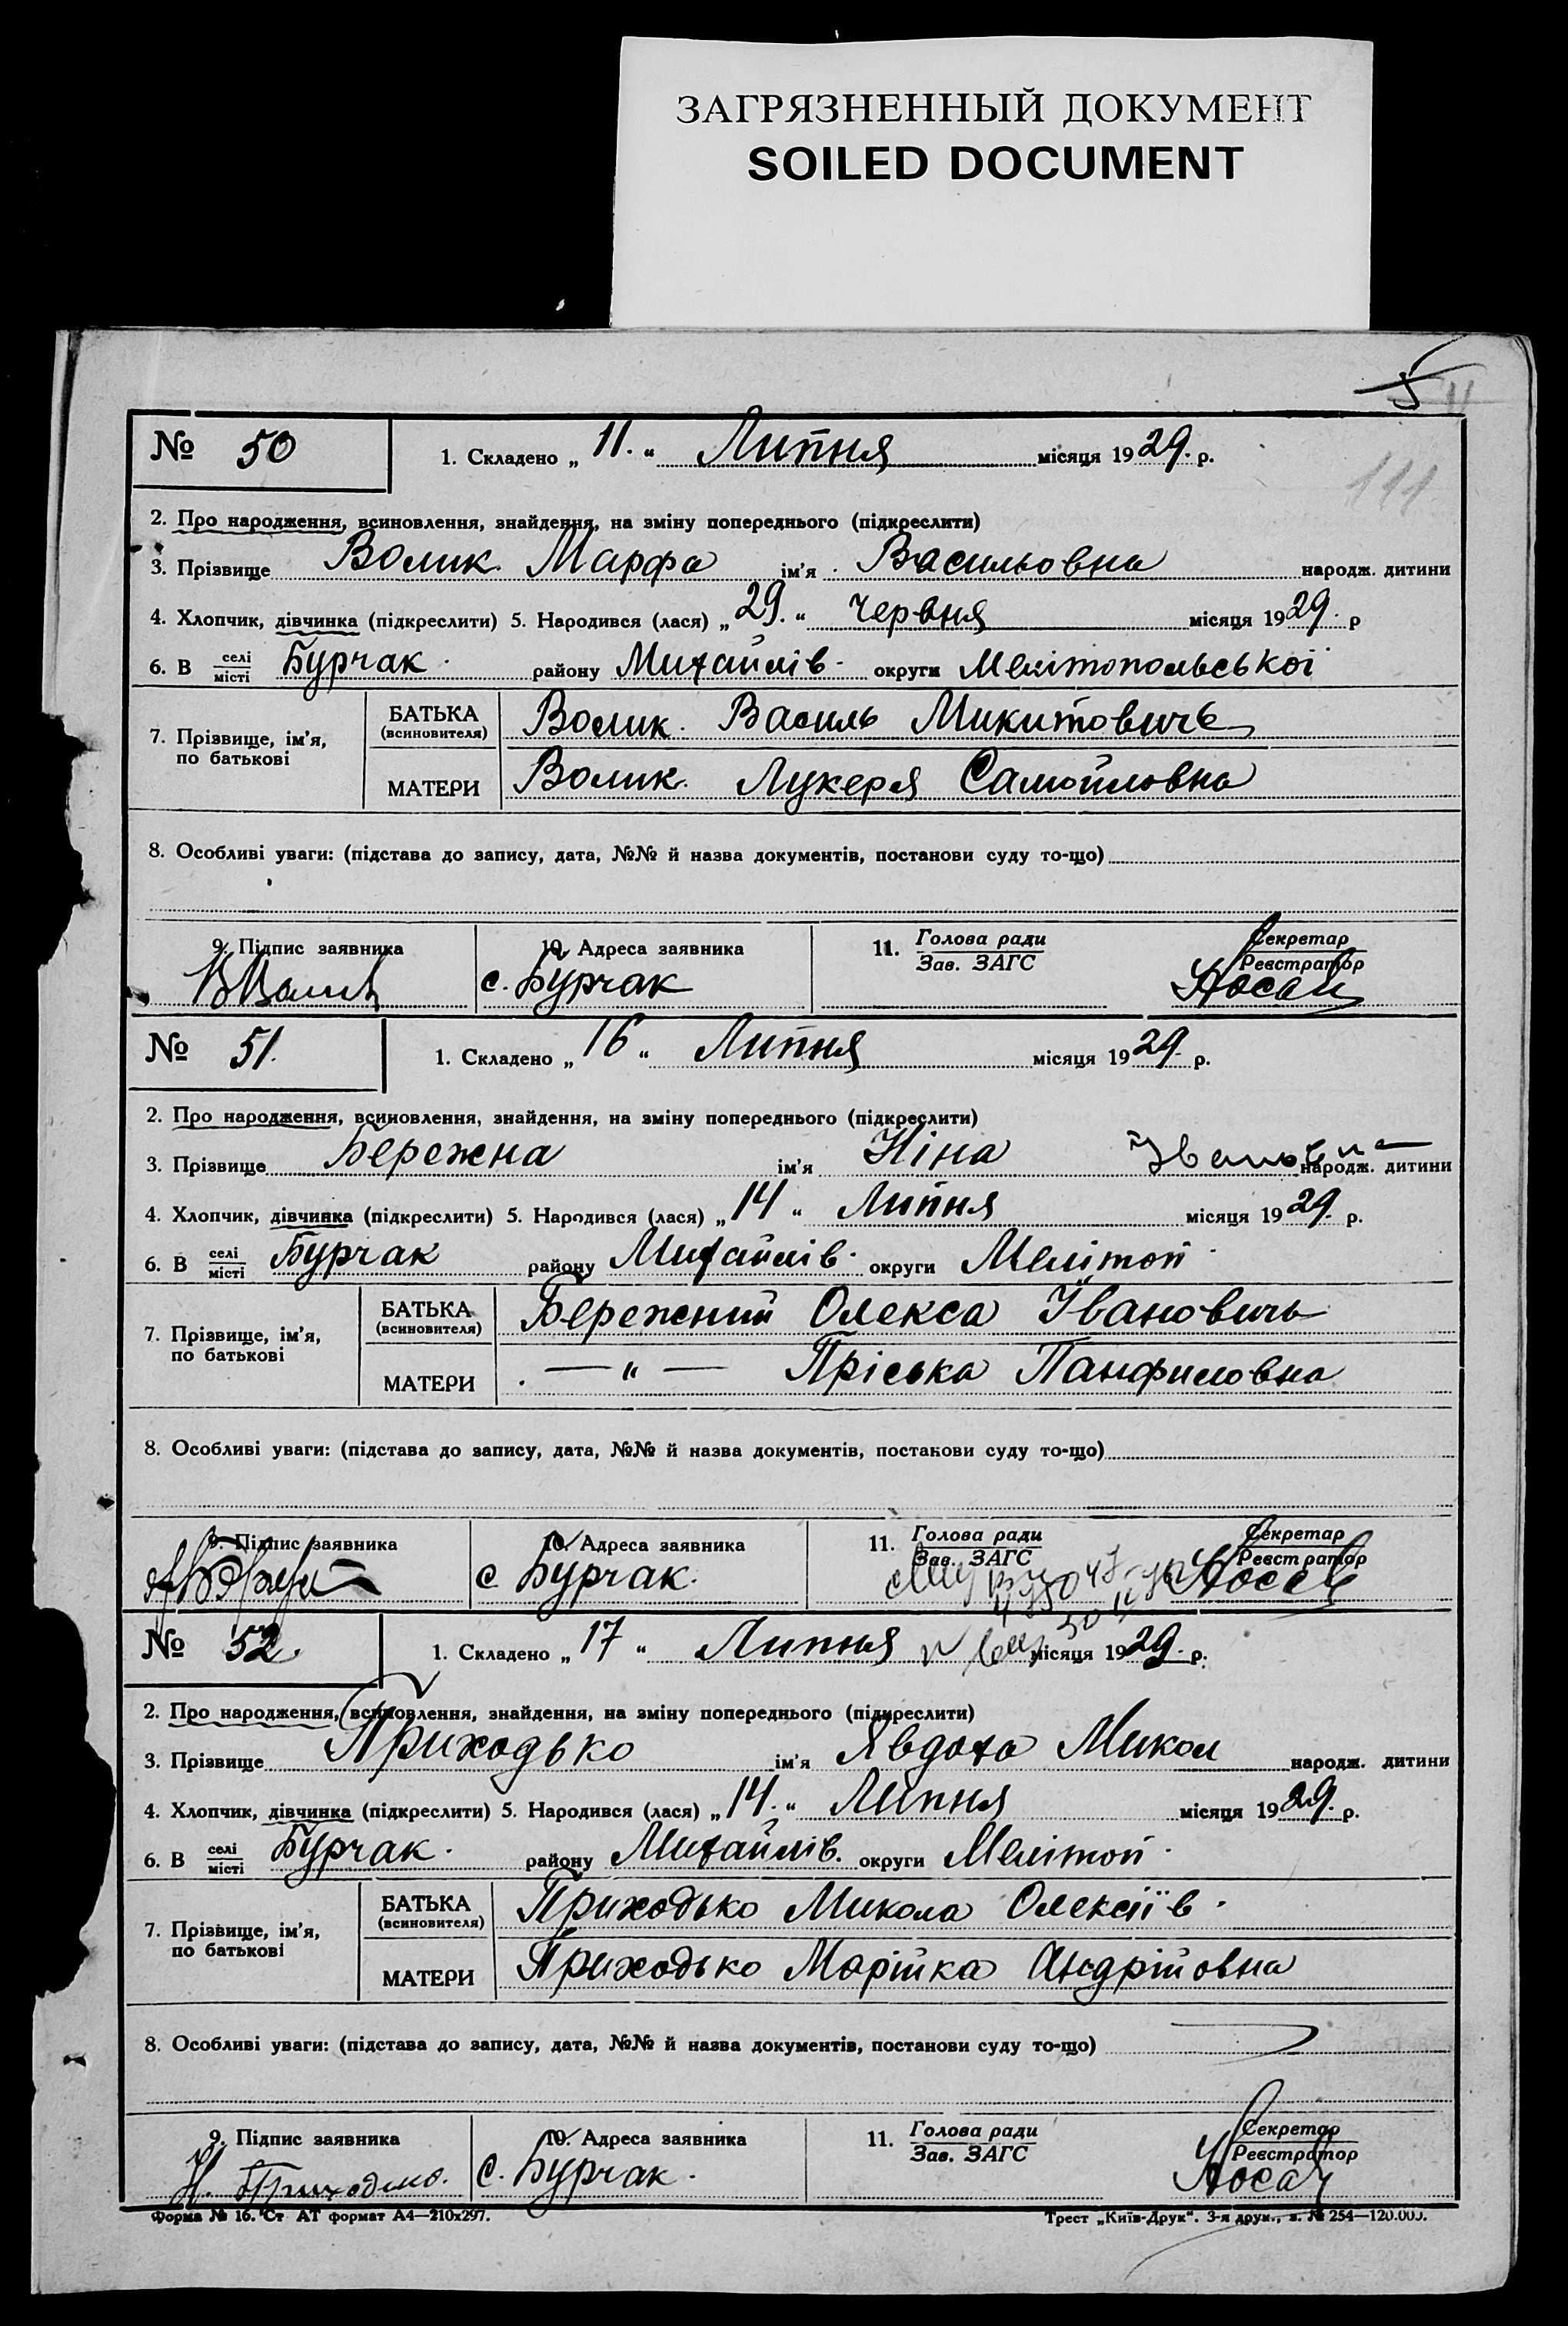 ЗАГРЯЗНЕННЫЙ ДОКУМЕНТ
SOILED DOCUMENT
5
111
№ 50
1. Складено „ 11. “ Липня місяця 1929. р.
2. Про народження, всиновлення, знайдення, на зміну попереднього (підкреслити)
3. Прізвище Волик Марфа ім'я Васильовна народж. дитини
4. Хлопчик, дівчинка (підкреслити) 5. Народився (лася) „ 29. “ червня місяця 1929. р
6. В селі місті Бурчак району Михайлів. округи Мелітопольської
7. Прізвище, ім'я, по батькові
БАТЬКА (всиновителя) Волик Василь Микитовичь
МАТЕРИ Волик Лукеря Самойловна
8. Особливі уваги: (підстава до запису, дата, №№ й назва документів, постанови суду то-що)
9. Підпис заявника 10. Адреса заявника 11. Голова ради Зав. ЗАГС Секретар Реєстратор
ВВолик с. Бурчак Носач
№ 51.
1. Складено „ 16 “ Липня місяця 1929. р.
2. Про народження, всиновлення, знайдення, на зміну попереднього (підкреслити)
3. Прізвище Бережна ім'я Ніна народж. дитини
4. Хлопчик, дівчинка (підкреслити) 5. Народився (лася) „ 14 “ Липня місяця 1929. р.
6. В селі місті Бурчак району Михайлів. округи Меліtоп.
7. Прізвище, ім'я, по батькові
БАТЬКА (всиновителя) Бережний Олекса Івановичь
МАТЕРИ — “ — Пріська Панфиловна
8. Особливі уваги: (підстава до запису, дата, №№ й назва документів, постанови суду то-що)
9. Підпис заявника 10. Адреса заявника 11. Голова ради Зав. ЗАГС Секретар Реєстратор
с Бурчак. Носач
№ 52.
1. Складено „ 17 “ Липня місяця 1929. р.
2. Про народження, всиновлення, знайдення, на зміну попереднього (підкреслити)
3. Прізвище Приходько ім'я Явдоха Микол народж. дитини
4. Хлопчик, дівчинка (підкреслити) 5. Народився (лася) „ 14. “ Липня місяця 1929. р.
6. В селі місті Бурчак. району Михайлів. округи Мелітоп.
7. Прізвище, ім'я, по батькові
БАТЬКА (всиновителя) Приходько Микола Олексіїв.
МАТЕРИ Приходько Марійка Андрійовна
8. Особливі уваги: (підстава до запису, дата, №№ й назва документів, постанови суду то-що)
9. Підпис заявника 10. Адреса заявника 11. Голова ради Зав. ЗАГС Секретар Реєстратор
Н. Приходько. с. Бурчак. Носач
Форма № 16. Ст АТ формат А4—210х297. Трест „Київ-Друк“. 3-я друк., з. № 254—120.000.